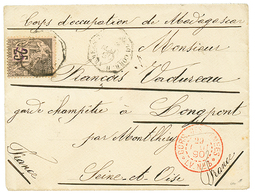 Corps d'occupation de Madagascar
Monsieur
François Vadureau
garde champêtre à Longpont
par Montlhéry
Seine-et-Oise
France
France
25